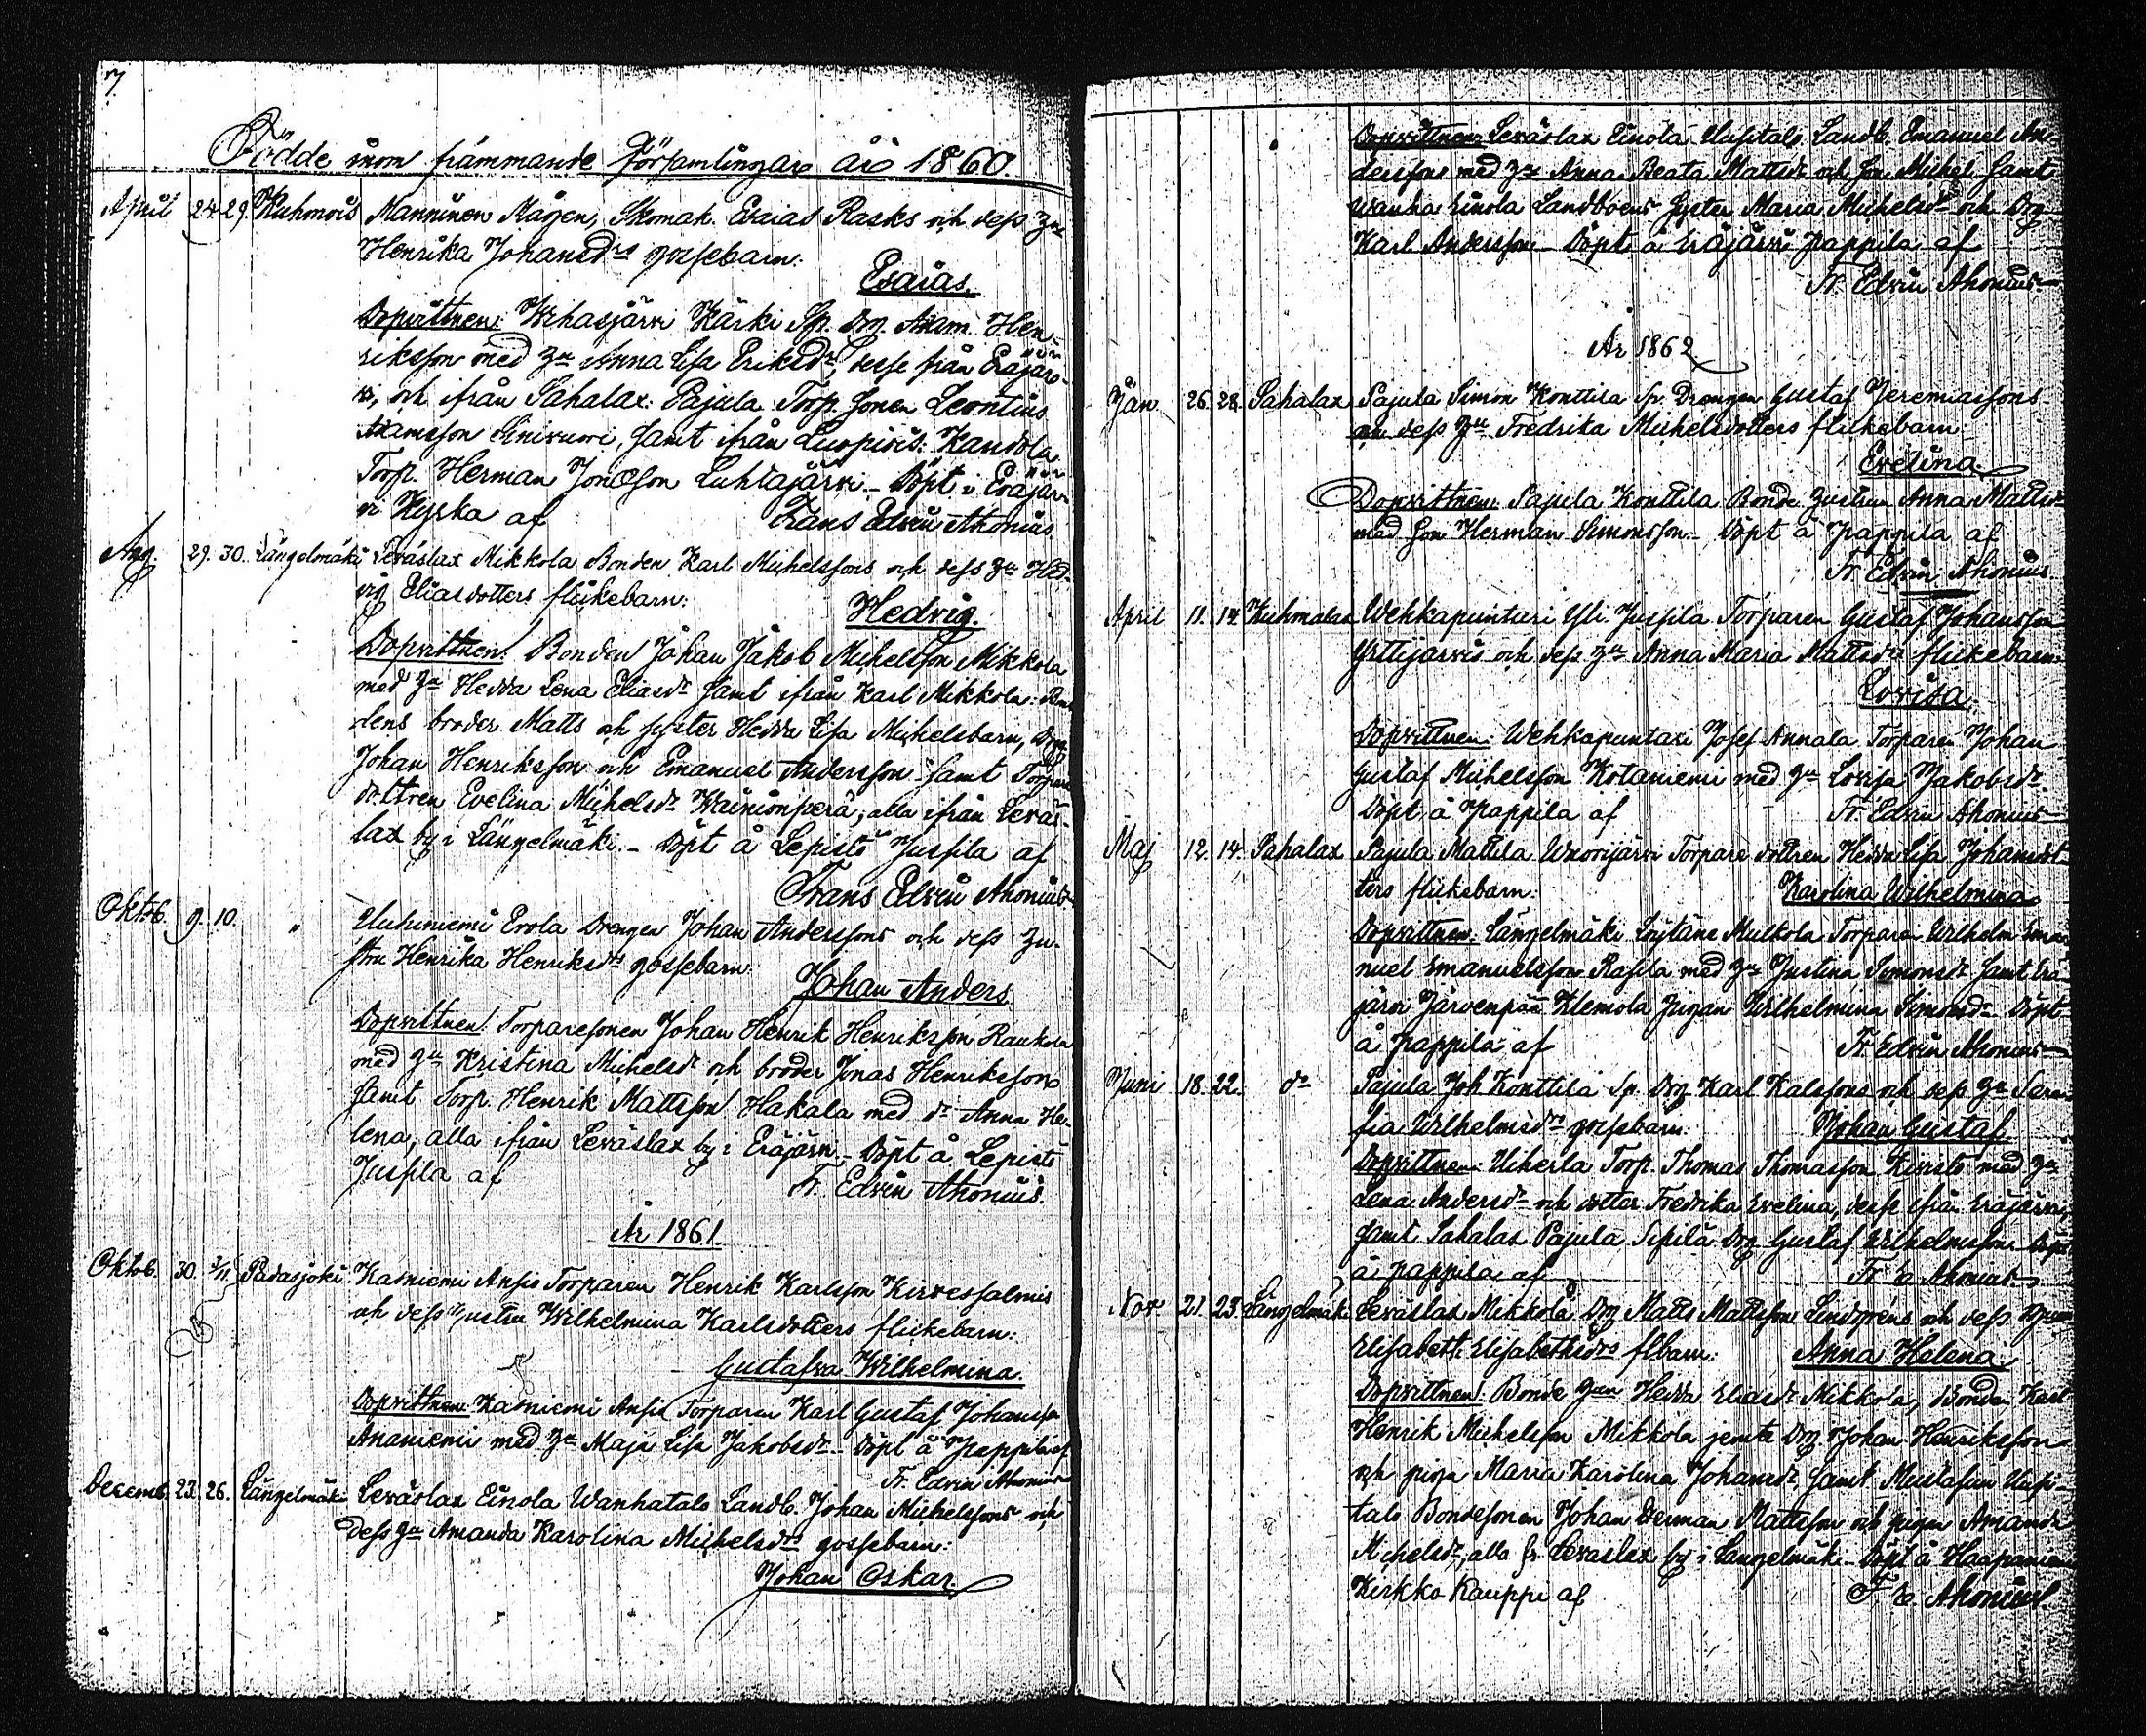 7
Födde inom främmande Församlingar år 1860.
April 24. 29. Kuhmois Manninen Mågen, Skomak. Esaias Rasks och dess hu
Henrika Johansdrs gossebarn:
Esaias.
Dopvittnen: Wihasjärvi Kärki Sp. Drg. Adam Hen-
riksson med hu Anna Lisa Eriksdr, desse från Eräjär-
vi, och ifrån Sahalax: Pajula Torp. Sonen Leontius
Adamsson Kinivuori, samt ifrån Luopiois: Kandola
Torp. Herman Jonasson Luhtajärvi - Döpt i Eräjär-
vi Kyrka af Frans Edvin Ahonius
Aug. 29. 30. Längelmäki Leväslax Mikkola Bonden Karl Michelssons och dess hu Hed-
vig Eliasdotters flickebarn:
Hedvig.
Dopvittnen: Bonden Johan Jakob Michelsson Mikkola
med hu Hedda Lena Eliasdr samt ifrån Karl Mikkola: Bon-
dens broder Matts och syster Hedda Lisa Michelsbarn, Drg
Johan Henriksson och Emanuel Andersson samt Torpare
dottren Evelina Michelsdr Wäinionperä, alla ifrån Leväs-
lax by i Längelmäki. - Döpt å Lepistö Jussila af
Frans Edvin Ahonius
Oktob. 9. 10. " Uuhiniemi Erola Drengen Johan Anderssons och dess hu-
stru Henrika Henriksdrs gossebarn:
Johan Anders
Dopvittnen: Torparesonen Johan Henrik Henriksson Raukola
med hu Kristina Michelsdr och broder Jonas Henriksson
samt Torp. Henrik Mattsson Hakala med dr Anna He-
lena, alla ifrån Leväslax by i Eräjärvi - Döpt å Lepistö
Jussila af Fr. Edvin Ahonius.
År 1861.
Oktob. 30. 3/11 Padasjoki Kasniemi Ansio Torparen Henrik Karlsson Kirvessalmis
och dess hustru Wilhelmina Karlsdotters flickebarn:
Gustafva Wilhelmina.
Dopvittnen: Kasniemi Ansio Torparen Karl Gustaf Johansson
Ananiemi med hu Maja Lisa Jakobsdr - Döpt å Pappila af
Fr. Edvin Ahonius
Decemb. 23. 26. Längelmäki Leväslax Einola Wanhatalo Landb. Johan Michelssons och
dess hu Amanda Karolina Michelsdrs gossebarn:
Johan Oskar.
Dopvittnen: Leväslax Einola Uusitalo Landb. Emanuel An-
dersson med hu Anna Beata Mattsdr och son Michel samt
Wanha Einola Landboens syster Maria Michelsdr och Drg
Karl Andersson - Döpt å Eräjärvi Pappila af
Fr. Edvin Ahonius
År 1862
Jan 26. 28. Sahalax Pajula Simon Konttila Sp. Drengen Gustaf Jeremiassons
och dess hu Fredrika Michelsdotters flickebarn:
Evelina.
Dopvittnen: Pajula Konttila Bonde hustrun Anna Mattsdr
med son Herman Simonsson - Döpt å Pappila af
Fr Edvin Ahonius
April 11. 14. Kuhmalax Wehkapuntari Yli Jussila Torparen Gustaf Johansson
Yrttijärvis och dess hu Anna Maria Mattsdrs flickebarn:
Lovisa.
Dopvittnen: Wehkapuntari Josef Annala Torparen Johan
Gustaf Michelsson Kotaniemi med hu Lovisa Jakobsdr.
Döpt å Pappila af Fr. Edvin Ahonius
Maj 12. 14. Sahalax Pajula Mattila Wuorijärvi Torpare dottren Hedda Lisa Johansdot-
ters flickebarn: Karolina Wilhelmina
Dopvittnen: Längelmäki Löytäne Mulkola Torparen Wilhelm Ema-
nuel Emanuelsson Rasila med hu Justina Simonsdr samt Erä-
järvi Järvenpää Klemola pigan Wilhelmina Simonsdr Döpt
å Pappila af Fr Edvin Ahonius
Juni 18. 22. do Pajula Joh Konttila Sp. Drg Karl Kalssons och dess hu Sera-
fia Wilhelmsdrs gossebarn: Johan Gustaf
Dopvittnen: Uiherla Torp. Thomas Thomasson Kivistö med hu
Lena Andersdr och dotter Fredrika Evelina, desse ifrån Eräjärvi,
samt Sahalax Pajula Sipilä Drg Gustaf Wilhelmsson Döpt
å Pappila af Fr E Ahonius
Nov. 21. 23. Längelmäki Leväslax Mikkola Drg Matts Mattsson Lindgrens och dess
Elisabeth Elisabethsdrs flbarn: Anna Helena.
Dopvittnen: Bonde hun Hedda Eliasdr Mikkola, Bonden Karl
Henrik Michelsson Mikkola jemte Drg Johan Henriksson
och piga Maria Karolina Johansdr, samt Mustasuu Uusi-
talo Bondesonen Johan Herman Mattsson och pigan Amanda
Michelsdr, alla fr. Leväslax by i Längelmäki - Döpt å Haapaniemi
Kirkko Kauppi af F E Ahonius